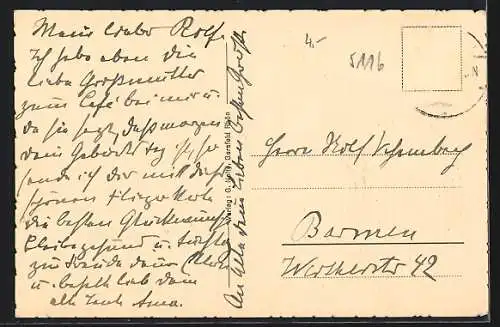 Mein lieber Rolf.
Ich habe eben die
liebe Großmutter
zum Café bei mir u.
da sie sagt, daß morgen
dein Geburtstag ist, so
sende ich dir mit dieser
schönen Fliegerkarte
die besten Glückwünsche
Bleibe gesund u.
zur Freude deiner Eltern
u. behalte lieb deine
alte Tante Anna.
An alle deine Lieben besten Grüße
Verlag: G. Gersfeld Rhön
4,-
5116
Herrn Rolf
Barmen
42